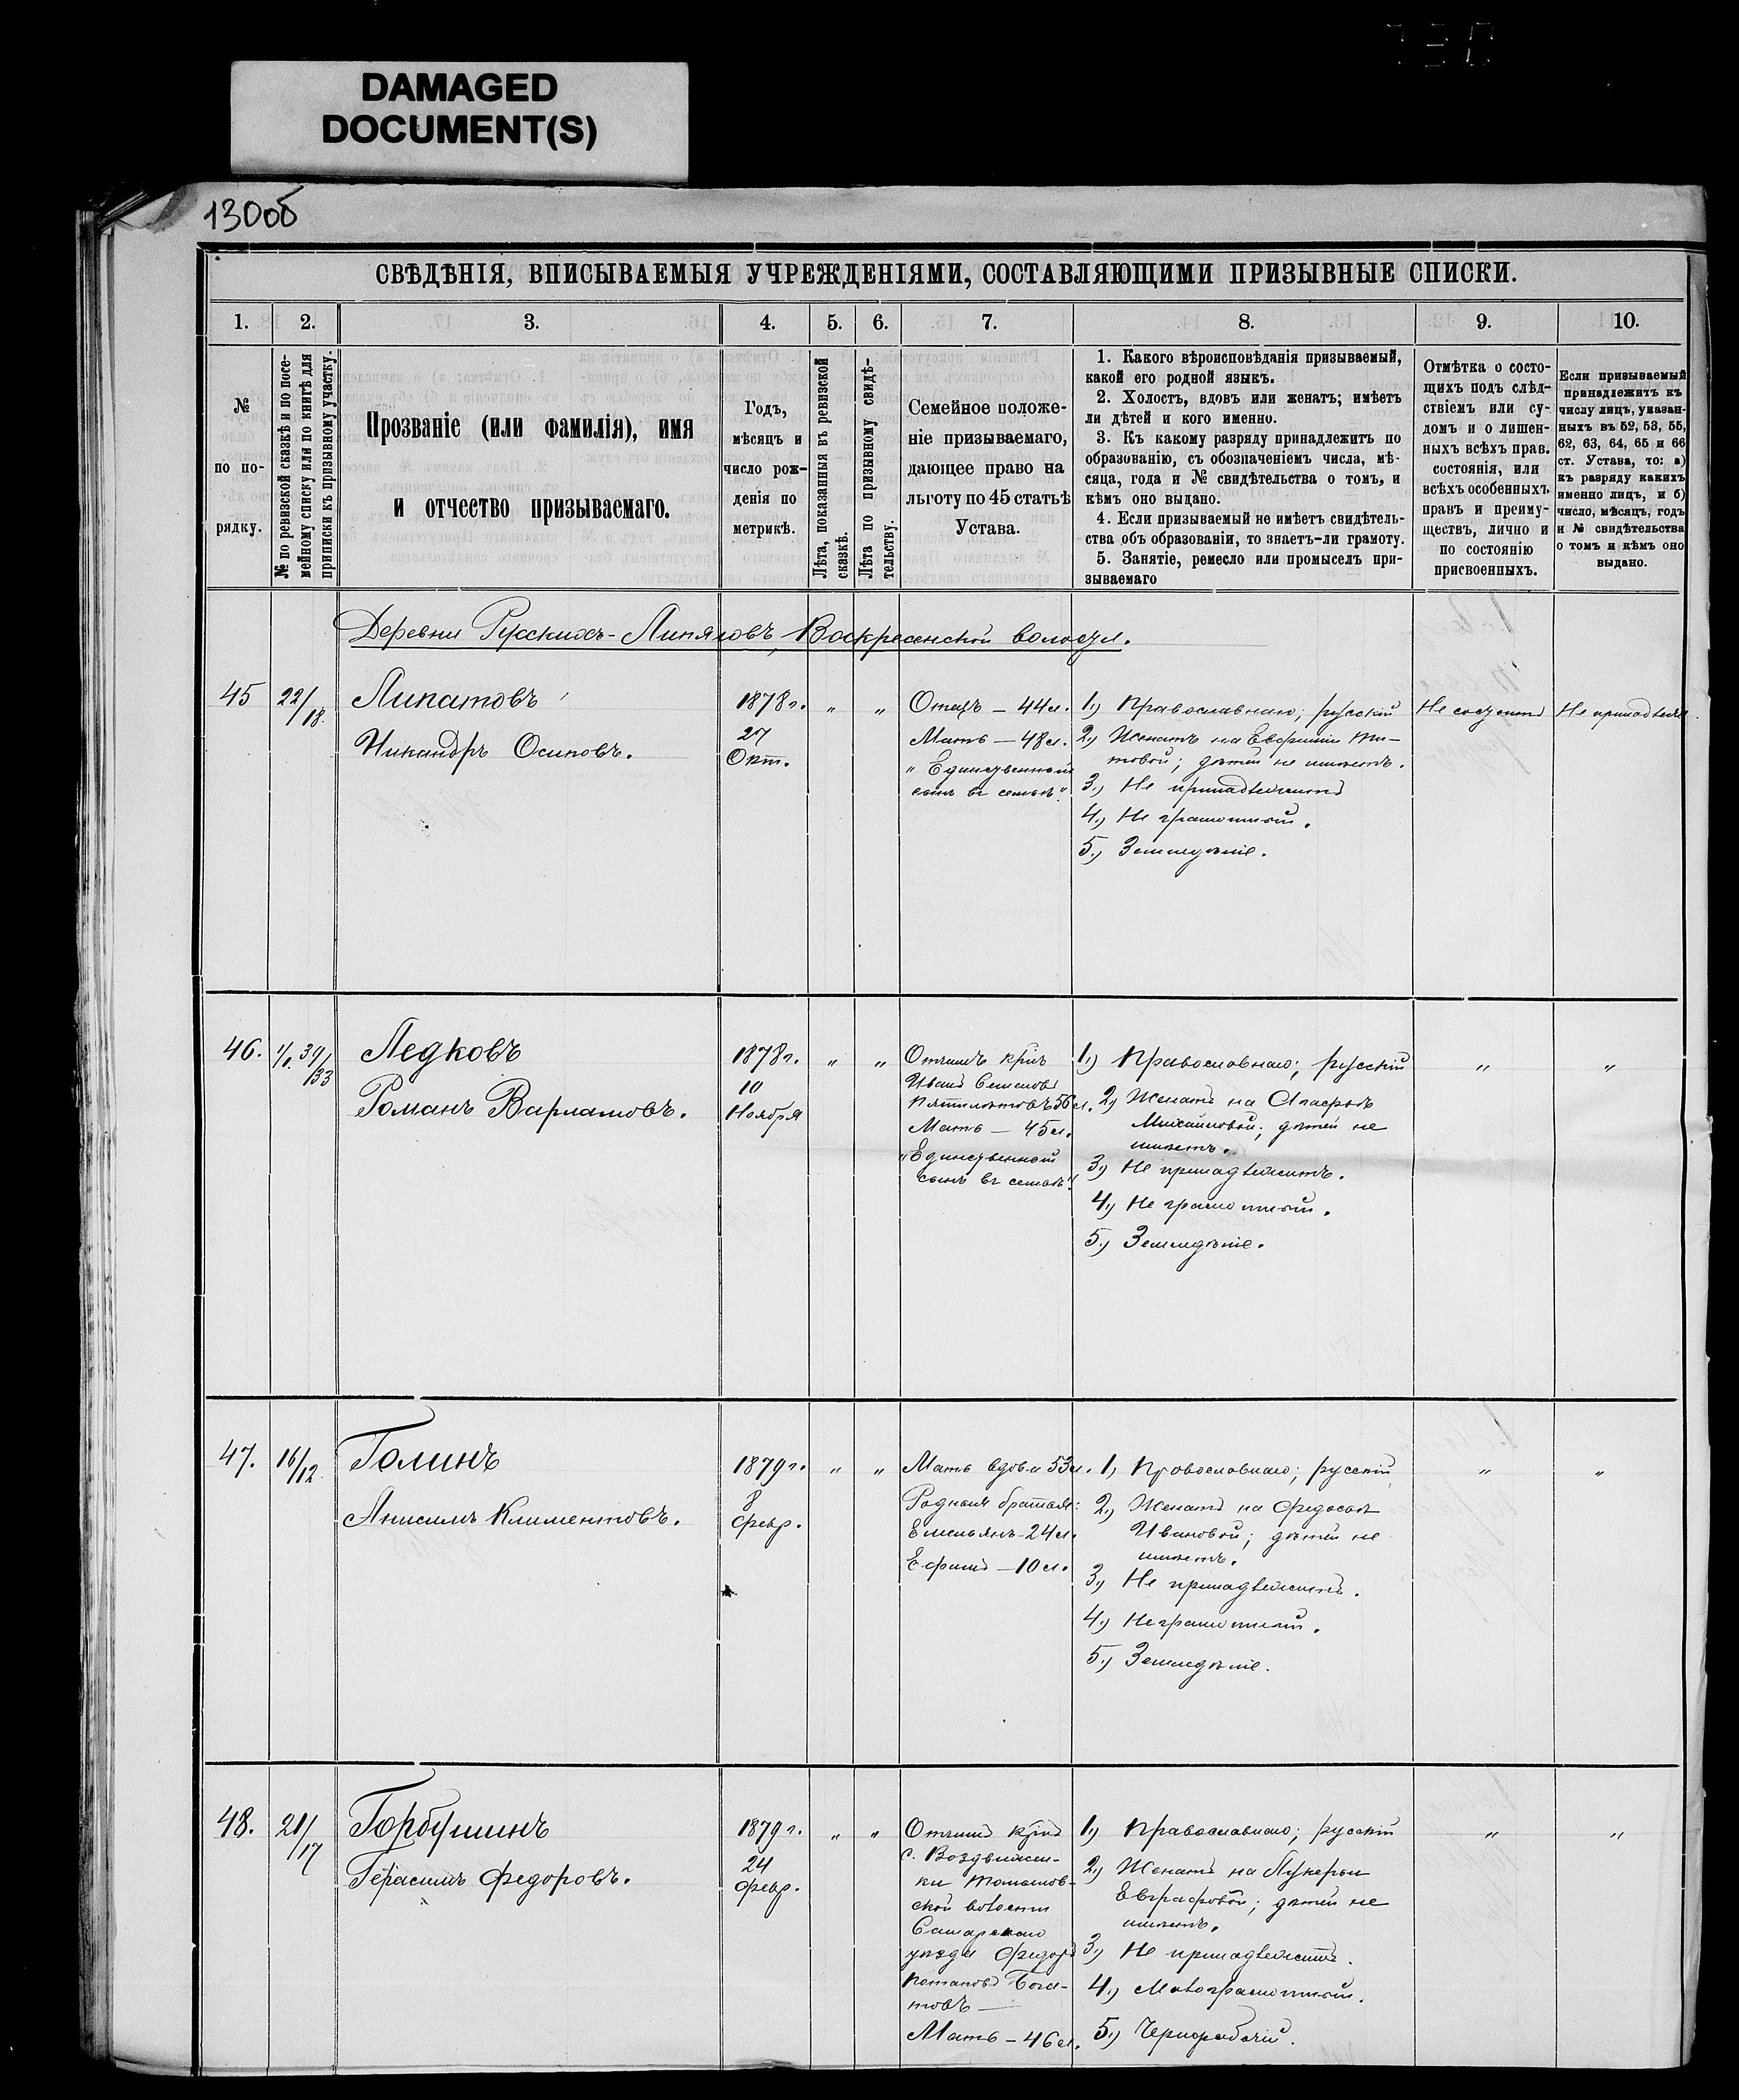 DAMAGED
DOCUMENT(S)
130об
СВѢДѢНІЯ, ВПИСЫВАЕМЫЯ УЧРЕЖДЕНІЯМИ, СОСТАВЛЯЮЩИМИ ПРИЗЫВНЫЕ СПИСКИ.
1. 2. 3. 4. 5. 6. 7. 8. 9. 10.
№
по по-
рядку.
№ по ревизской сказкѣ и по посе-
мейному списку или по книгѣ для
приписки къ призывному участку.
Прозваніе (или фамилія), имя
и отчество призываемаго.
Годъ,
мѣсяцъ и
число рож-
денія по
метрикѣ.
Лѣта, показанныя въ ревизской
сказкѣ.
Лѣта по призывному свидѣ-
тельству.
Семейное положе-
ніе призываемаго,
дающее право на
льготу по 45 статьѣ
Устава.
1. Какого вѣроисповѣданія призываемый,
какой его родной языкъ.
2. Холостъ, вдовъ или женатъ; имѣетъ
ли дѣтей и кого именно.
3. Къ какому разряду принадлежитъ по
образованію, съ обозначеніемъ числа, мѣ-
сяца, года и № свидѣтельства о томъ, и
кѣмъ оно выдано.
4. Если призываемый не имѣетъ свидѣтель-
ства объ образованіи, то знаетъ-ли грамоту.
5. Занятіе, ремесло или промыселъ при-
зываемаго
Отмѣтка о состо-
щихъ подъ слѣд-
ствіемъ или су-
домъ и о лишен-
ныхъ всѣхъ прав.
состоянія, или
всѣхъ особенныхъ
правъ и преиму-
ществъ, лично и
по состоянію
присвоенныхъ.
Если призываемый
принадлежитъ къ
числу лицъ, указан-
ныхъ въ 52, 53, 55,
62, 63, 64, 65 и 66
ст. Устава, то: а)
къ разряду какихъ
именно лицъ, и б)
число, мѣсяцъ, годъ
и № свидѣтельства
о томъ и кѣмъ оно
выдано.
Деревни Русскихъ-Липяговъ, Воскресенской волости.
45
22/18.
Липатовъ
Никандръ Осиповъ.
1878 г.
27
Окт.
" "
Отецъ — 44 л.
Мать — 48 л.
"Единственный
сынъ въ семьѣ".
1.) Православнаго; русскій
2.) Женатъ на Евфиміи Ти-
товой; дѣтей не имѣетъ.
3.) Не принадлежитъ
4.) Не грамотный.
5.) Земледѣліе.
Не состоитъ
46.
39/33
Ледковъ
Романъ Варламовъ.
1878 г.
10
Ноября
" "
Отчимъ кр-нъ
Иванъ Семеновъ
Пятилѣтовъ 56 л.
Мать — 45 л.
"Единственный
сынъ въ семьѣ".
1.) Православнаго; русскій
2.) Женатъ на
Михайловой; дѣтей не
имѣетъ.
3.) Не принадлежитъ.
4.) Не грамотный.
5.) Земледѣліе.
" "
47.
16/12.
Голинъ
Анисимъ Климентовъ.
1879 г.
8
Февр.
" "
Мать вдова 53 л.
Родныя братья:
Емельянъ - 24 л.
Ефимъ — 10 л.
1.) Православнаго; русскій
2.) Женатъ на Федосьѣ
Ивановой; дѣтей не
имѣетъ.
3.) Не принадлежитъ.
4.) Неграмотный.
5.) Земледѣліе.
" "
48.
21/17
Горбушинъ
Герасимъ Федоровъ.
1879 г.
24
Февр.
" "
Отчимъ кр-нъ
с. Воздвижен-
ки Томылов-
ской волости
Самарскаго
уѣзда Федоръ
Потаповъ Бога-
товъ —
Мать — 46 л.
1.) Православнаго; русскій
2.) Женатъ на Лукерьи
Евграфовой; дѣтей не
имѣетъ.
3.) Не принадлежитъ.
4.) Малограмотный.
5.) Чернорабочій.
" "